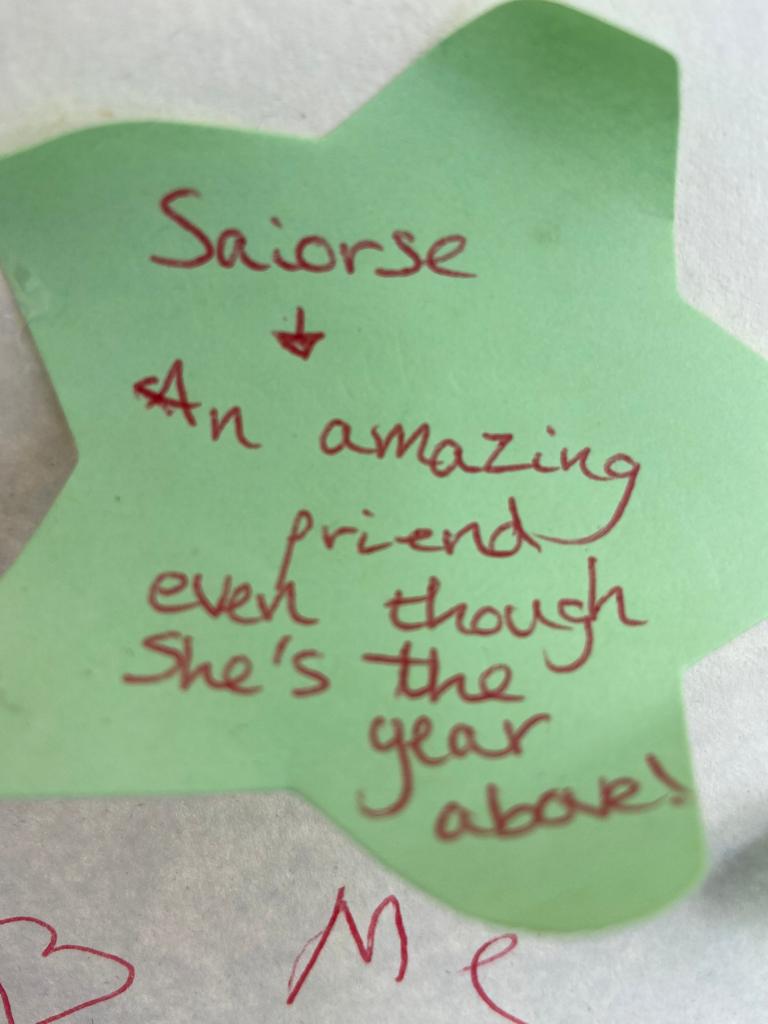 Saiorse
An amazing
friend
even though
She's the
year
above!
Me